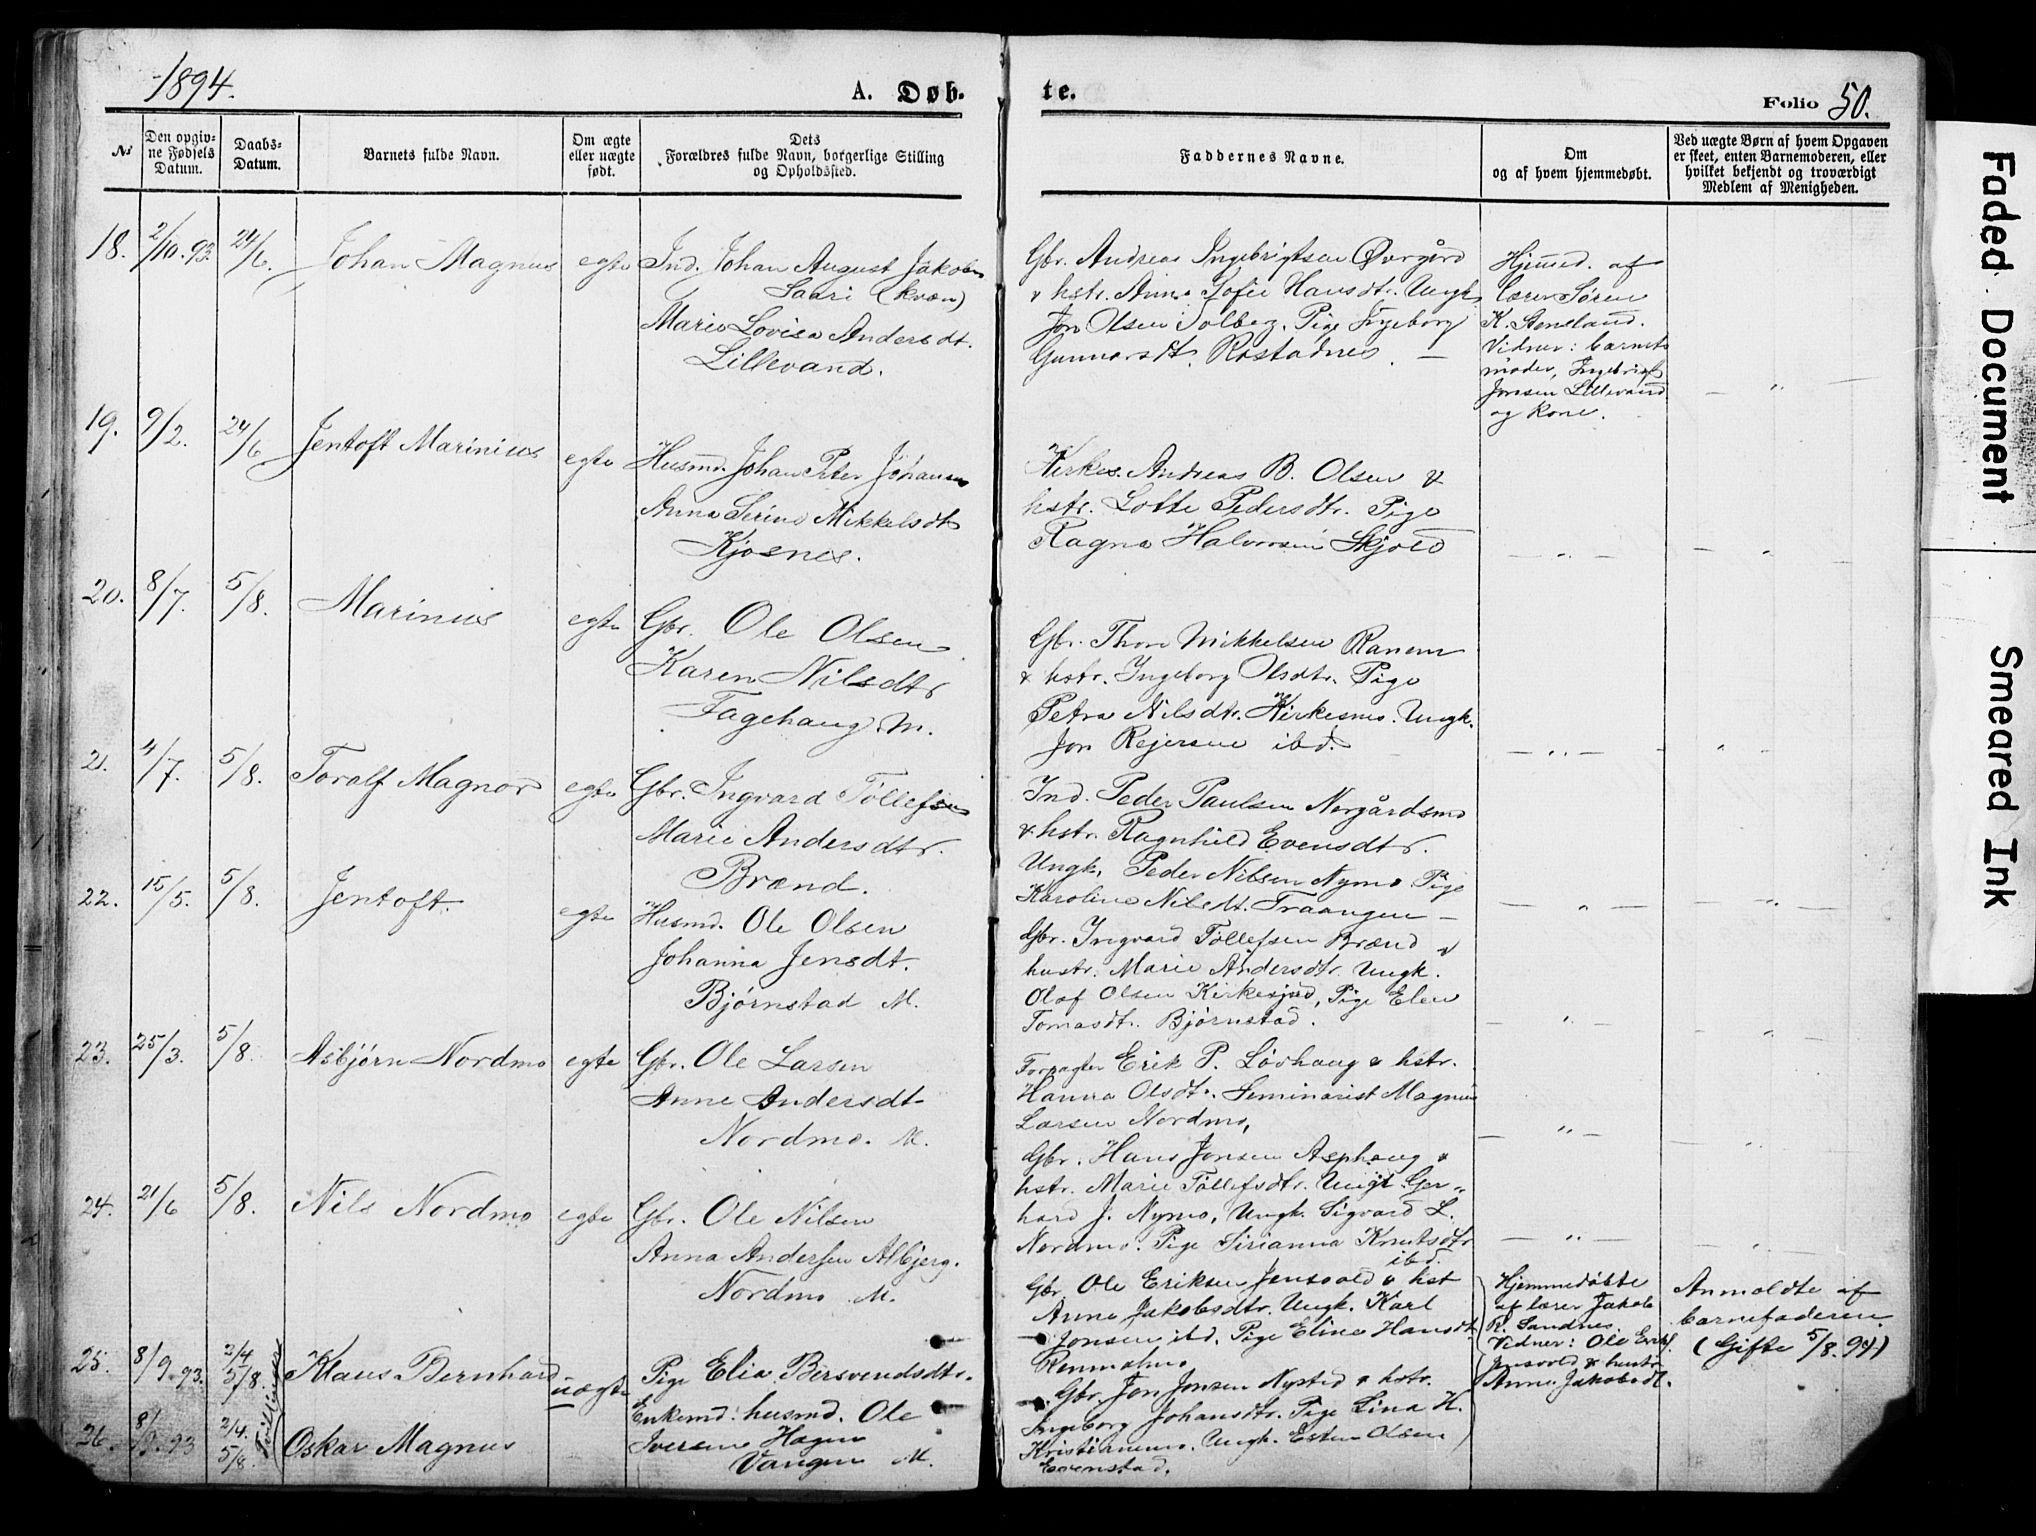 1894.
A. Døb-
te.
Folio 50.
No
Den opgiv-
ne Fødsels
Datum.
Daabs-
Datum.
Barnets fulde Navn.
Om ægte
eller uægte
født.
Dets
Forældres fulde Navn, borgerlige Stilling
og Opholdssted.
Faddernes Navne.
Om
og af hvem hjemmedøbt.
Ved uægte Børn af hvem Opgaven
er skeet, enten Barnemoderen, eller
hvilket bekjendt og troværdigt
Medlem af Menigheden.
18. 2/10.93. 24/6. Johan Magnus egte Ind. Johan August Jakobsen
Saari (kvæn)
Marie Lovisa Andersdt.
Lillevand.
Gbr. Andreas Ingebrigtsen Øvrgård
& hstr. Anne Sofie Hansdtr. Ungk.
Jon Olsen Solberg. Pige Ingeborg
Gunnarsdt. Rostadnes. —
Hjemmed. af
lærer Søren
K. Steneland.
Vidner: barnets
moder, Ingebrigt
Jonsen Lillevand
og kone.
— " —
19. 9/2. 24/6 Jentoft Marinius egte Husmd. Johan Peter Johansen
Anna Serine Mikkelsdt
Kjosnes.
Kirkes. Andreas B. Olsen &
hstr. Lotte Pedersdtr. Pige
Ragna Halvorsen Skjold
— " — — "
20. 8/7. 5/8. Marinius egte Gbr. Ole Olsen
Karen Nilsdtr
Fagehaug M.
Gbr. Thore Mikkelsen Ranem
& hstr. Ingeborg Olsdtr. Pige
Petra Nilsdtr. Kirkesmo. Ungk.
Jon Rejersen ibd.
— " — "
21. 4/7. 5/8. Toralf Magnor egte Gbr. Ingvard Tollefsen
Marie Andersdtr.
Brænd.
Ind. Peder Paulsen Norgårdsmo
& hstr. Ragnhild Evensdtr.
Ungk. Peder Nilsen Nymo Pige
Karoline Nilsdt. Traangen —
— " — — " —
22. 15/5. 5/8. Jentoft. egte Husmd. Ole Olsen
Johanna Jensdt.
Bjørnstad M.
Gbr. Ingvard Tollefsen Brænd &
hustr. Marie Andersdtr. Ungk.
Olaf Olsen Kirkesjord, Pige Elen
Tomasdtr. Bjørnstad.
— " — "
23. 25/3. 5/8. Asbjørn Nordmo egte Gbr. Ole Larsen
Anne Andersdt-
Nordmo. M.
Forpagter Erik P. Løvhaug & hstr.
Hanna Olsdtr. Seminarist Magnus
Larsen Nordmo,
— " — "
24. 21/6 5/8. Nils Nordmo egte Gbr. Ole Nilsen
Anna Andersen Albjerg.
Nordmo M.
Gbr. Hans Jonsen Asphaug &
hstr. Marie Tollefsdtr. Ungk. Ger-
hard J. Nymo, Ungk. Sigvard L.
Nordmo. Pige Sirianna Knutsdtr
ibd.
— " — "
25. 8/9.93. 2/4. 5/8. Klaus Bernhard uægte Pige Elia Bersvendsdtr.
& Enkemd: husmd. Ole
Iversen Hagen
Vangen M.
Gbr. Ole Eriksen Jensvold & hst
Anne Jakobsdtr. Ungk. Karl
Jonsen ibd. Pige Eline Hansdt.
Renmælmo
Hjemmedøbte
af lærer Jakob
R. Sandnes.
Vidner: Ole Erik.
Jensvold & hustr
Anne Jakobsdt.
Anmeldte af
barnefaderen
(Gifte 5/8.94)
26. 8/9.93 2/4. 5/8. Tvillinger Oskar Magnus
Gbr. Jon Jonsen Nysted & hstr.
Ingeborg Johansdtr. Pige Lina H.
Kristianmo. Ungk. Esten Olsen
Evenstad.
Faded Document
Smeared Ink